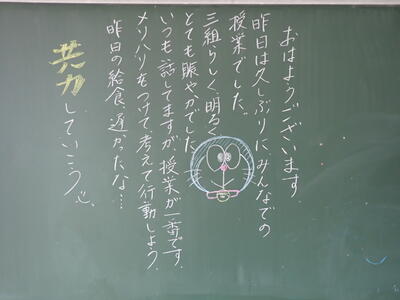 おはようございます。
昨日は久しぶりにみんなでの
授業でした。
三組らしく、明るく
とても賑やかでした。
いつも話してますが、授業が一番です。
メリハリをつけて、考えて行動しよう。
昨日の給食、遅かったな…
共力していこう